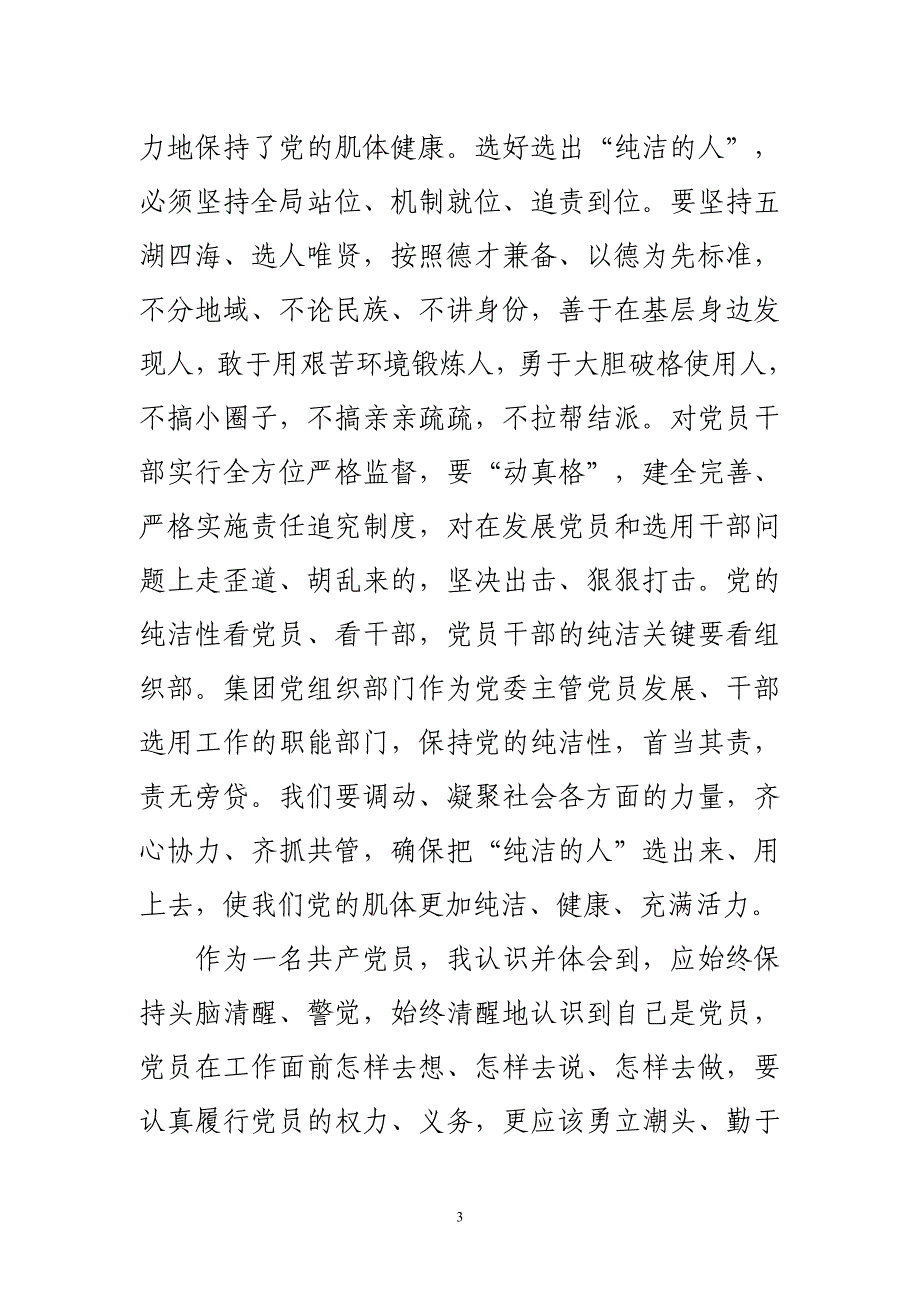 力地保持了党的肌体健康。选好选出“纯洁的人”，
必须坚持全局站位、机制就位、追责到位。要坚持五
湖四海、选人唯贤，按照德才兼备、以德为先标准，
不分地域、不论民族、不讲身份，善于在基层身边发
现人，敢于用艰苦环境锻炼人，勇于大胆破格使用人，
不搞小圈子，不搞亲亲疏疏，不拉帮结派。对党员干
部实行全方位严格监督，要“动真格”，建全完善、
严格实施责任追究制度，对在发展党员和选用干部问
题上走歪道、胡乱来的，坚决出击、狠狠打击。党的
纯洁性看党员、看干部，党员干部的纯洁关键要看组
织部。集团党组织部门作为党委主管党员发展、干部
选用工作的职能部门，保持党的纯洁性，首当其责，
责无旁贷。我们要调动、凝聚社会各方面的力量，齐
心协力、齐抓共管，确保把“纯洁的人”选出来、用
上去，使我们党的肌体更加纯洁、健康、充满活力。
作为一名共产党员，我认识并体会到，应始终保
持头脑清醒、警觉，始终清醒地认识到自己是党员，
党员在工作面前怎样去想、怎样去说、怎样去做，要
认真履行党员的权力、义务，更应该勇立潮头、勤于
3